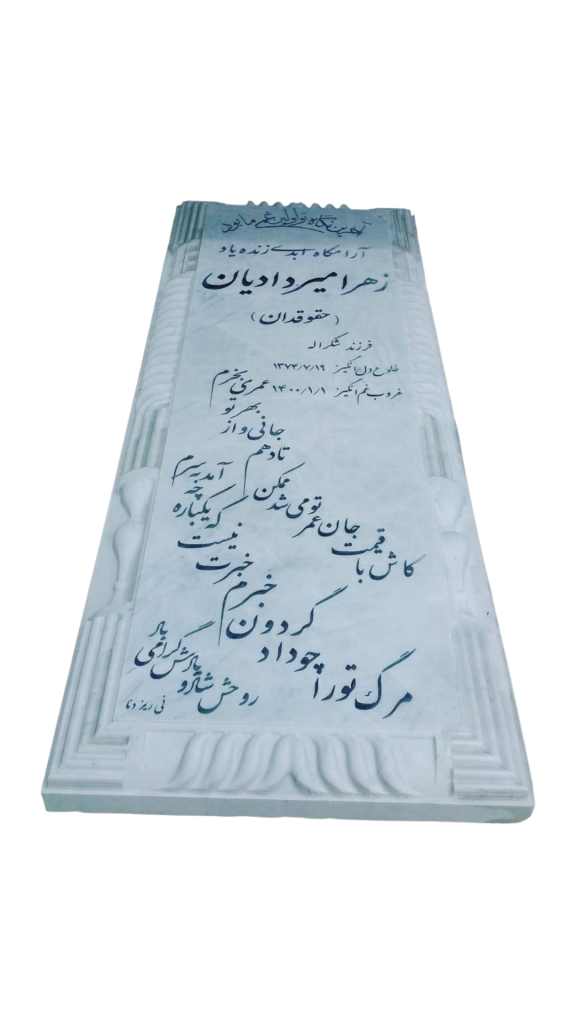 آخرین نگاه تو اولین غم ما بود
آرامگاه ابدی زنده یاد
زهرا امیردادیان
(حقوقدان)
فرزند شکراله
طلوع دل انگیز ۱۳۷۴/۷/۱۹
غروب غم انگیز ۱۴۰۰/۱/۱
کاش با قیمت جان عمر تو می شد ممکن
تا دهم جانی و از بهر تو عمری بخرم
مرگ تو را چو داد گردون خبرم
خبرت نیست که یکباره چه آمد به سرم
روحش شاد و یادش گرامی باد
نی ریز دنا